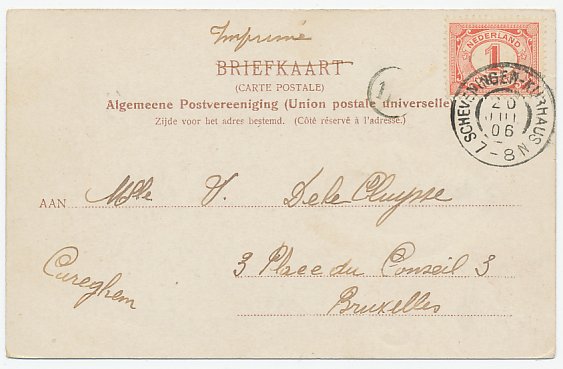 Imprimé
BRIEFKAART
(CARTE POSTALE)
Algemeene Postvereeniging (Union postale universelle)
Zijde voor het adres bestemd. (Côté réservé à l'adresse.)
NEDERLAND
1
1
SCHEVENINGEN-KURHAUS
20
JUL
06
7-8 N
AAN Mlle V. De la Cluyse
Cureghem
3 Place du Conseil 3
Bruxelles